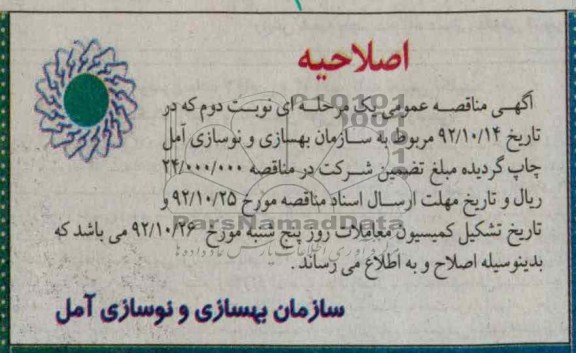 اصلاحیه
آگهی مناقصه عمومی یک مرحله ای نوبت دوم که در
تاریخ ۹۲/۱۰/۱۴ مربوط به سازمان بهسازی و نوسازی آمل
چاپ گردیده مبلغ تضمین شرکت در مناقصه ۲۴/۰۰۰/۰۰۰
ریال و تاریخ مهلت ارسال اسناد مناقصه مورخ ۹۲/۱۰/۲۵ و
ParsNamadData
تاریخ تشکیل کمیسیون معاملات روز پنج شنبه مورخ ۹۲/۱۰/۲۶ می باشد که
بدینوسیله اصلاح و به اطلاع می رساند .
سازمان بهسازی و نوسازی آمل